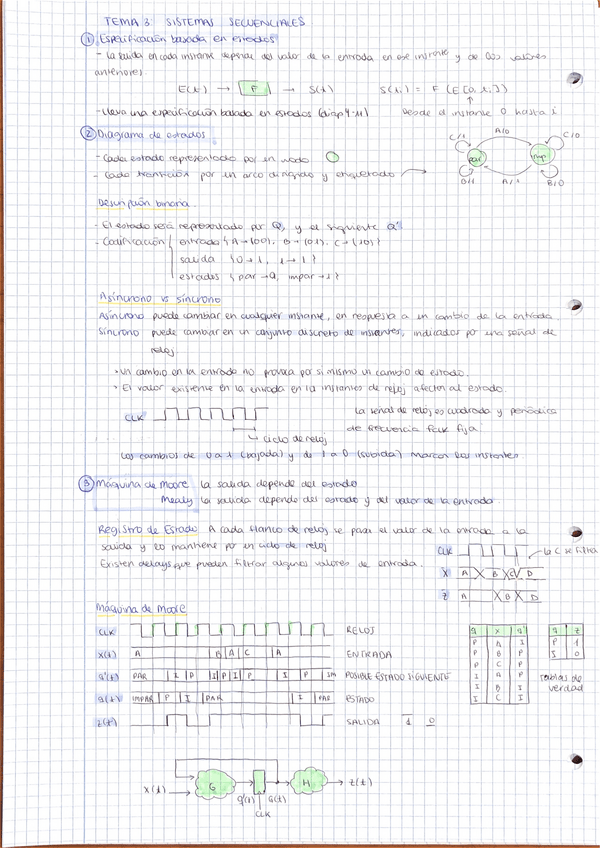 TEMA 3: SISTEMAS SECUENCIALES
① Especificación basada en estados
- La salida en cada instante depende del valor de la entrada en ese instante y de los valores
anteriores.
E(t) → F → S(t) S(ti) = F (E[0, ti])
-Lleva una especificación basada en estados (diap 4-11) Desde el instante 0 hasta i
② Diagrama de estados
C/1 A/0 C/0
- Cada estado representado por un nodo
par imp
- Cada transición por un arco dirigido y etiquetado
B/1 A/1 B/0
Descripción binaria.
- El estado será representado por Q, y el siguiente Q'
- Codificación entrada {A→(00), B→(01), C→(10)}
salida {0→1, 1→1}
estados {par→0, impar→1}
Asíncrono vs síncrono
Asíncrono puede cambiar en cualquier instante, en respuesta a un cambio de la entrada
Síncrono puede cambiar en un conjunto discreto de instantes, indicados por una señal de
reloj
· Un cambio en la entrada no provoca por si mismo un cambio de estado.
· El valor existente en la entrada en los instantes de reloj afecta al estado.
CLK La señal de reloj es cuadrada y periódica
ciclo de reloj de frecuencia fija
Los cambios de 0 a 1 (bajada) y de 1 a 0 (subida) marcan los instantes
③ Máquina de Moore la salida depende del estado
Mealy la salida depende del estado y del valor de la entrada
Registro de Estado A cada flanco de reloj se pasa el valor de la entrada a la
salida y lo mantiene por un ciclo de reloj
Existen delays que pueden filtrar algunos valores de entrada.
CLK la C se filtra
X A B C D
Z A B D
Máquina de Moore
CLK RELOJ
x(t) A B A C A ENTRADA
q'(t) PAR I P I P I P I P IM POSIBLE ESTADO SIGUIENTE
q(t) IMPAR P I PAR I PAR ESTADO
z(t) SALIDA 1 0
q x q'
P A I
P B P
P C P
I A P
I B I
I C I
q z
P 1
I 0
Tablas de
verdad
x(t) G H z(t)
q'(t) q(t)
CLK